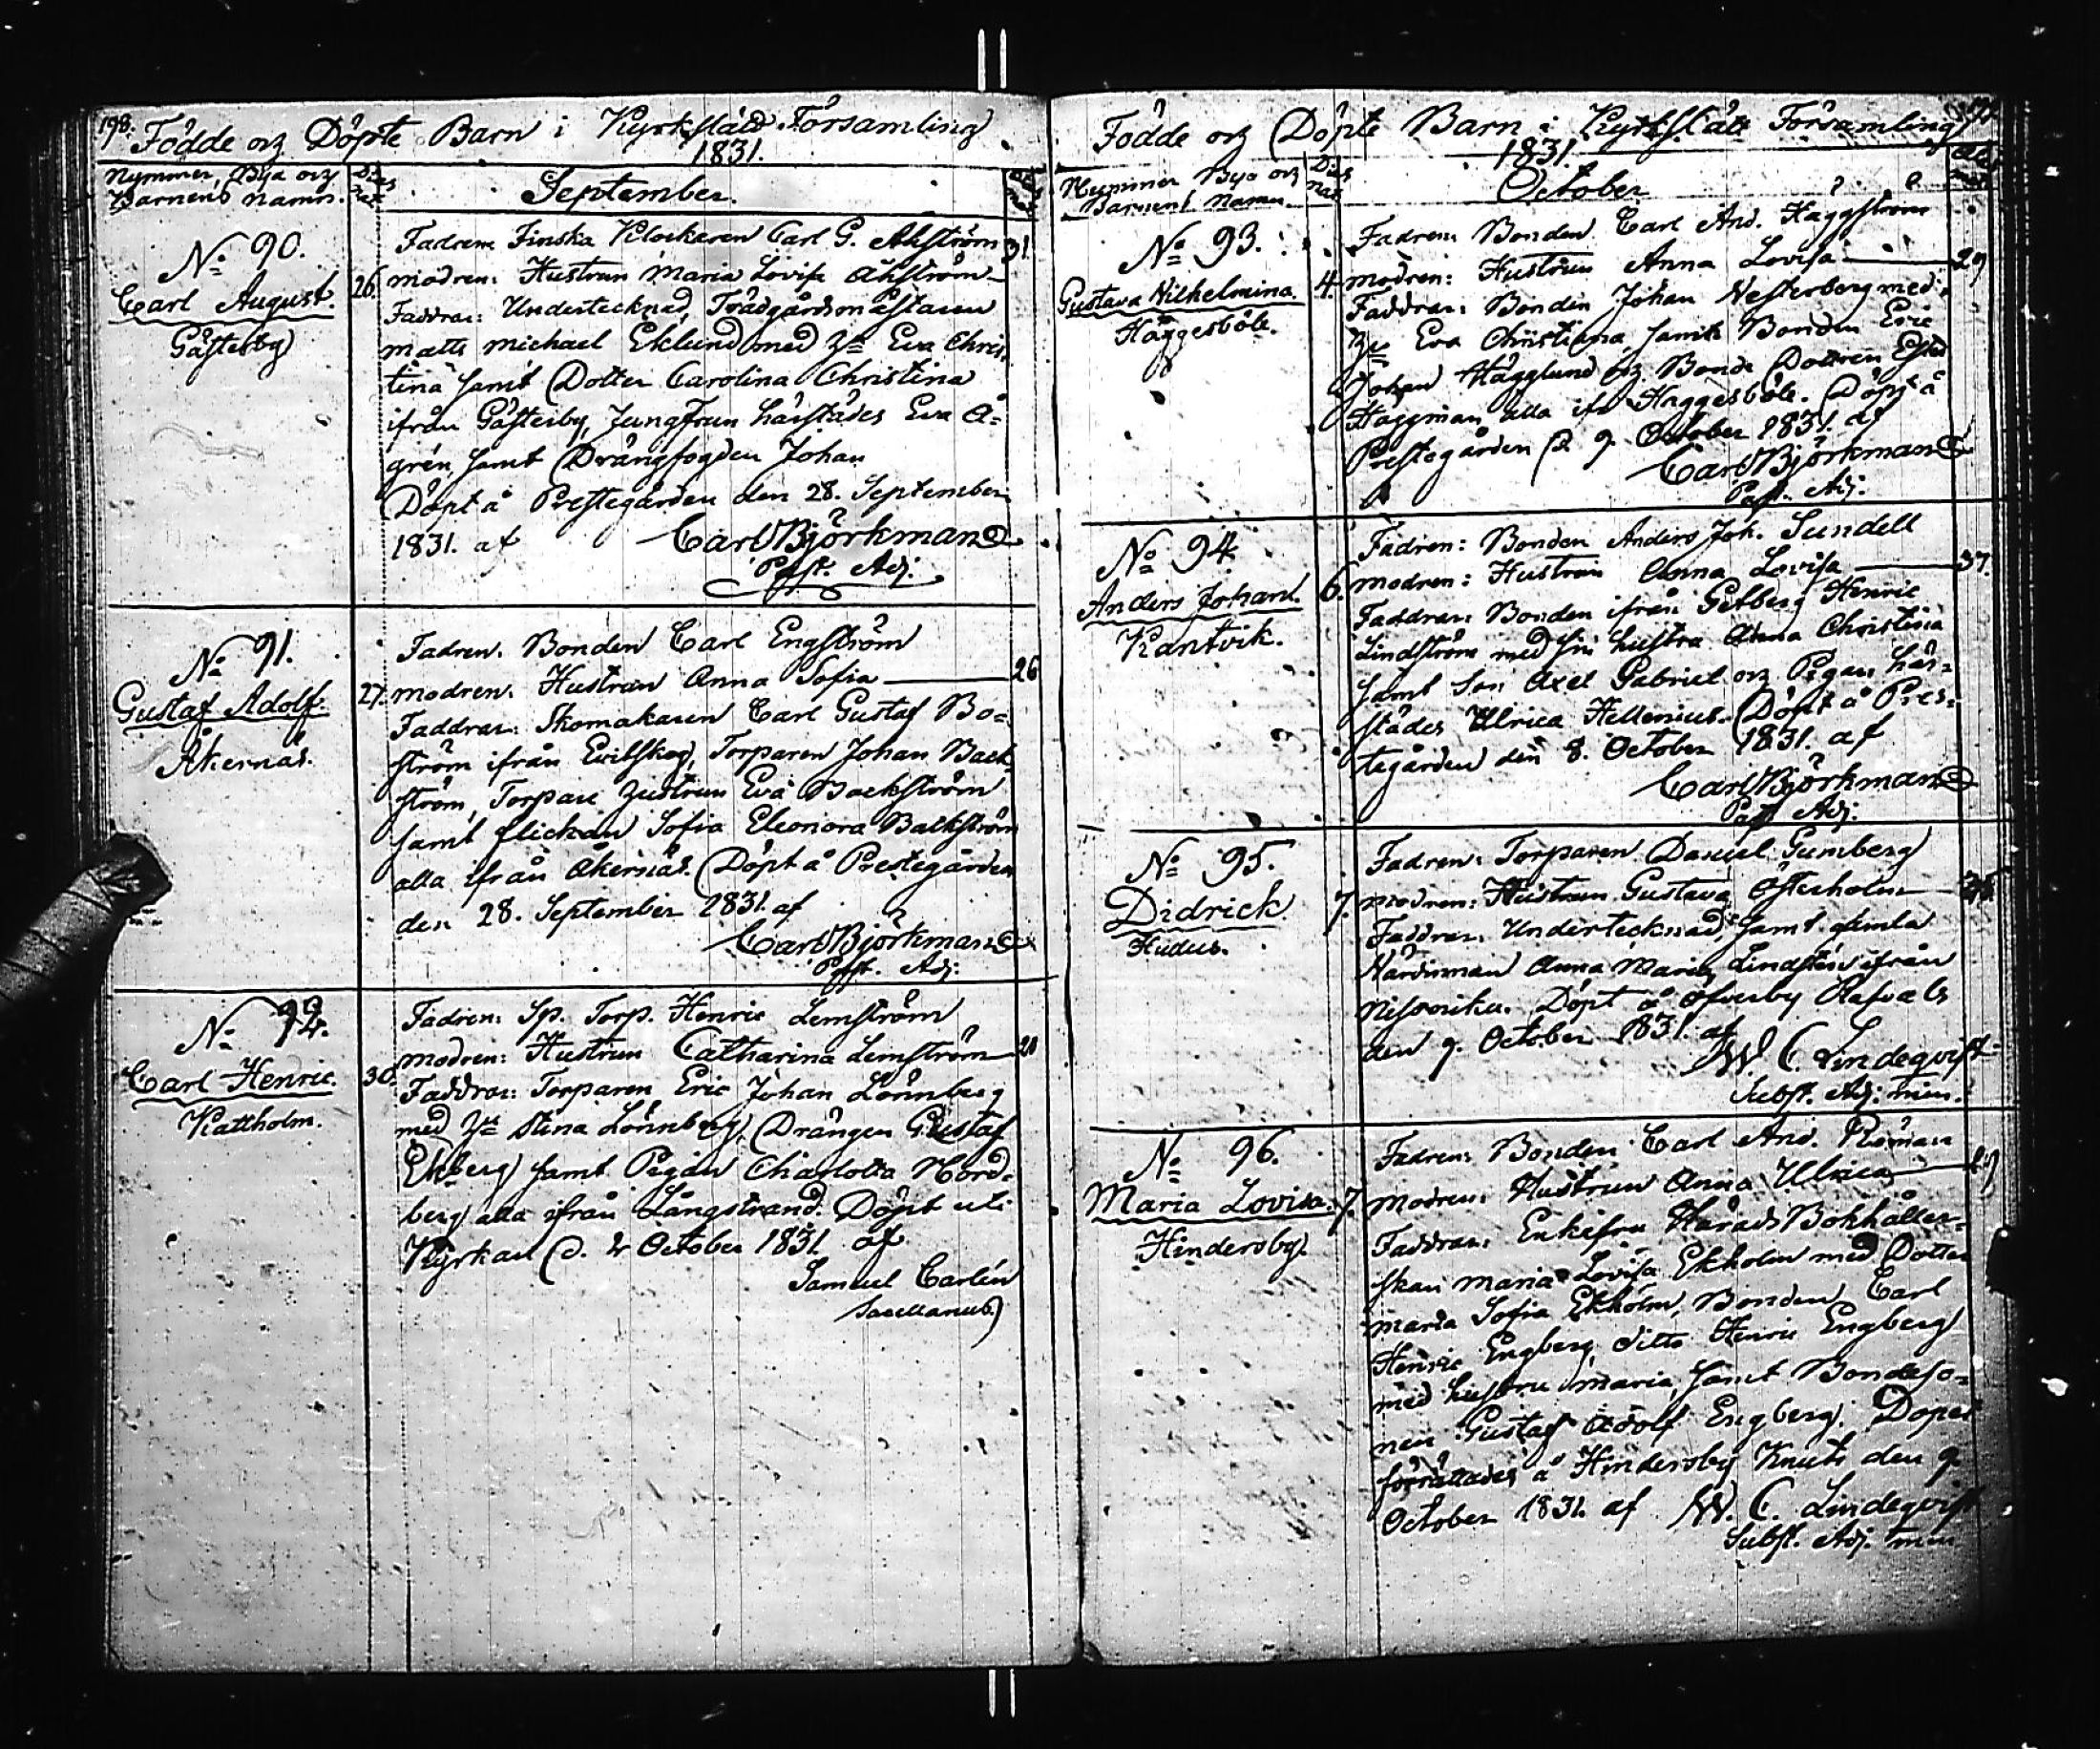 198.
Födde och Döpte Barn i Kyrkslätt Församling
1831.
Nummer, Bya och
Barnens namn.
September.
No 90.
Carl August.
Gåsterby
26.
Fadren Finska Klockaren Carl G. Åhström
31
modren: Hustrun Maria Lovisa Åhström
Faddrar: Undertecknad, Trädgårdsmästaren
Matts Michael Eklund med Eva Chris
tina samt Dotter Carolina Christina
ifrån Gåsterby, Jungfrun härstädes Eva Å=
grén samt Drängfogden Johan
Döpt å Prestegården den 28. September
1831. af Carl Björkman
Past. Adj.
No 91.
Gustaf Adolf.
Åkernäs.
27.
Fadren. Bonden Carl Engström
modren. Hustrun Anna Sofia
26
Faddrar: Skomakaren Carl Gustaf Bo=
ström ifrån Evitskog, Torparen Johan Back
ström, Torpare Hustrun Eva Backström
samt flickan Sofia Eleonora Backström
alla ifrån Åkernäs. Döpt å Prestegården
den 28. September 1831. af
Carl Björkman
Past. Adj.
No 92.
Carl Henric.
Kattholm.
30.
Fadren: Sp. Torp. Henric Lemström
modren: Hustrun Catharina Lemström
Faddrar: Torparen Eric Johan Lönnberg
med Stina Lönnberg, Drängen Gustaf
Ekberg samt Pigan Charlotta Nord=
berg alla ifrån Långstrand. Döpt uti
Kyrkan d. 2 October 1831. af
Samuel Carlén
Sacellanus
Födde och Döpte Barn i Kyrkslätt Församling
1831.
Nummer Bya och
Barnens Namn
October
No 93.
Gustava Wilhelmina.
Häggesböle.
4.
Fadren: Bonden Carl And. Häggström
modren: Hustrun Anna Lovisa
29
Faddrar: Bonden Johan Westerberg med
Eva Christina, samt Bonden Eric
Johan Hägglund och Bonde Dottren
Häggman alla ifr. Häggesböle. Döpt å
Prestegården d. 9. October 1831. af
Carl Björkman
Past. Adj.
No 94.
Anders Johan.
Kantvik.
6.
Fadren: Bonden Anders Joh. Sundell
modren: Hustrun Anna Lovisa
37.
Faddrar: Bonden ifrån Getberg Henric
Lindström med sin hustru Anna Christina
samt Son Axel Gabriel och Pigan här=
städes Ulrica Hellenius. Döpt å Pres=
tegården den 8. October 1831. af
Carl Björkman
Past. Adj.
No 95.
Didrick
7.
Fadren: Torparen Daniel Gumberg
modren: Hustrun Gustava Österholm
Faddrar: Undertecknad, samt gamla
Anna Maria Lindstén ifrån
Döpt å Öfverby Rafvals
den 9. October 1831. af
W. C. Lindeqvist
Subst. Adj. min.
No 96.
Maria Lovisa.
Hindersby.
7.
Fadren: Bonden Carl And. Roman
modren: Hustrun Anna Ulrica
Faddrar: Enkefru Härads Bokhåller=
skan Maria Lovisa Ekholm med Dotter
Maria Sofia Ekholm, Bonden Carl
Henric Engberg, ditto Henric Engberg
med hustru Maria, samt Bondeso=
nen Gustaf Adolf Engberg. Dopet
förrättades å Hindersby Knuts den 9
October 1831. af W. C. Lindeqvist
Subst. Adj. min